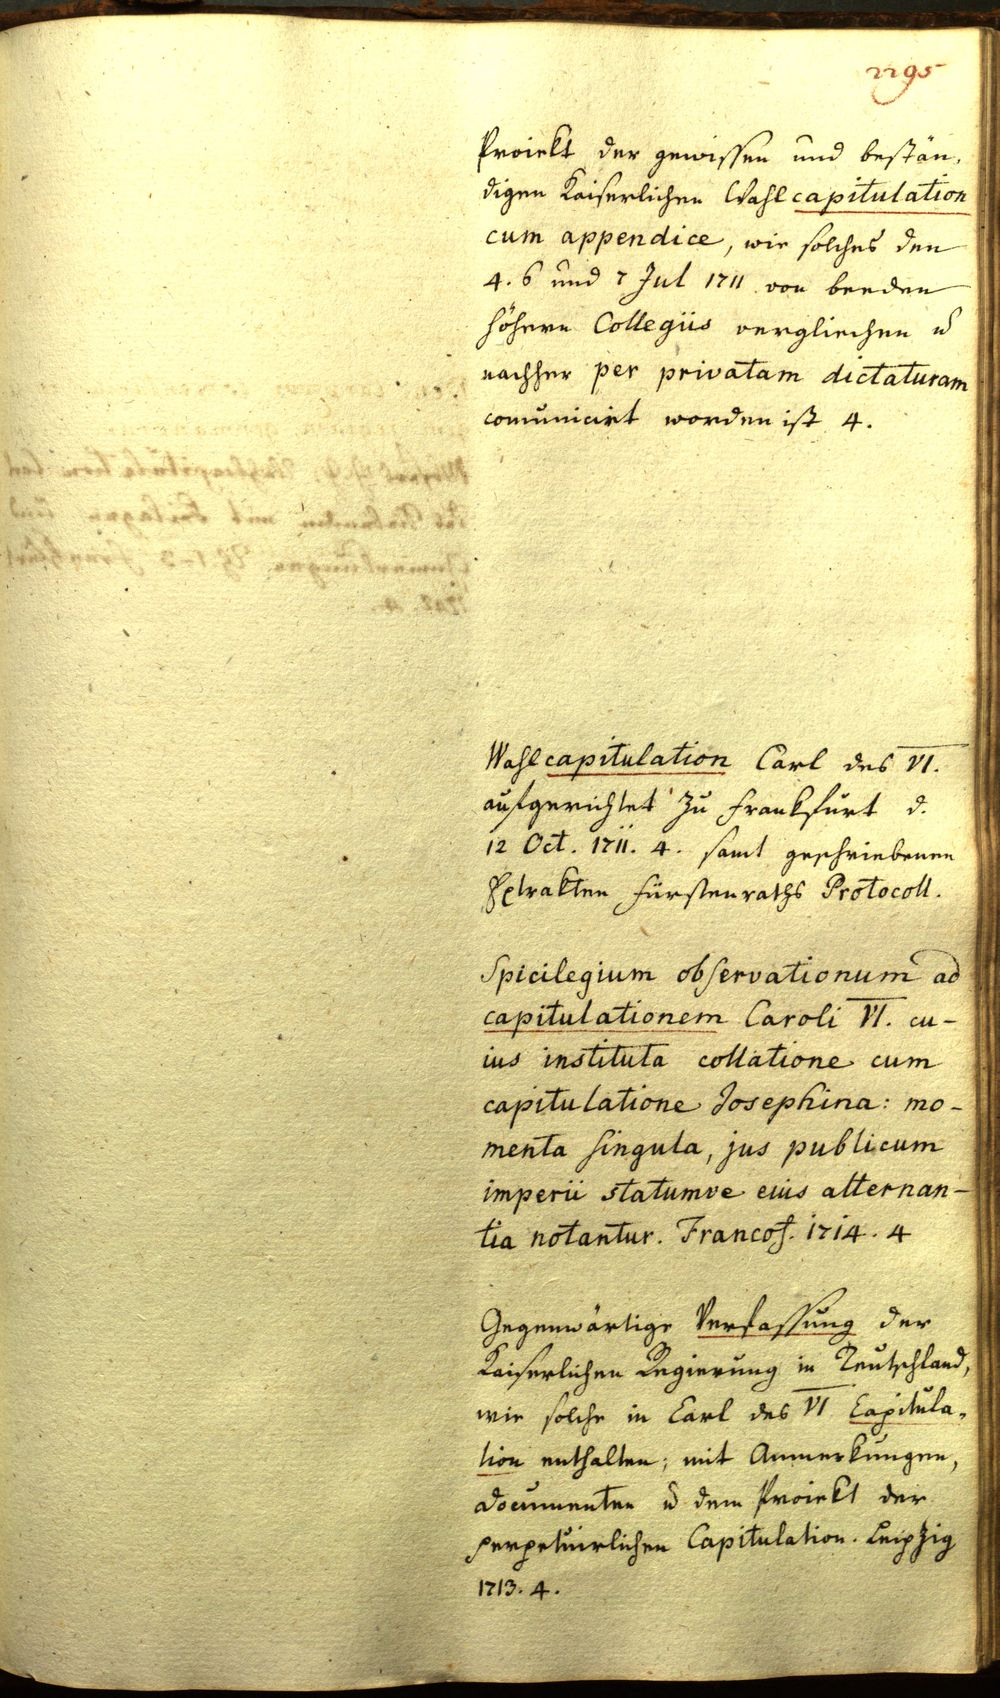 2295
Proiekt der gewissen und bestän-
digen Kaiserlichen Wahlcapitulation
cum appendice, wie solches den
4. 6 und 7 Jul 1711 von beeden
höhern Collegiis vergliechen u
nachher per privatam dictaturam
comunicirt worden ist 4.
Wahlcapitulation Carl des VI.
aufgerichtet zu Frankfurt d.
12 Oct. 1711. 4. samt geschriebenen
Extrakten Fürstenraths Protocoll.
Spicilegium observationum ad
capitulationem Caroli VI. cu-
ius instituta collatione cum
capitulatione Josephina: mo-
menta singula, jus publicum
imperii statumve eius alternan-
tia notantur. Francof. 1714. 4
Gegenwärtige Verfassung der
Kaiserlichen Regierung in Teutschland,
wie solche in Carl des VI Capitula-
tion enthalten; mit Anmerkungen,
documenten u dem Proiekt der
perpetuirlichen Capitulation. Leipzig
1713. 4.